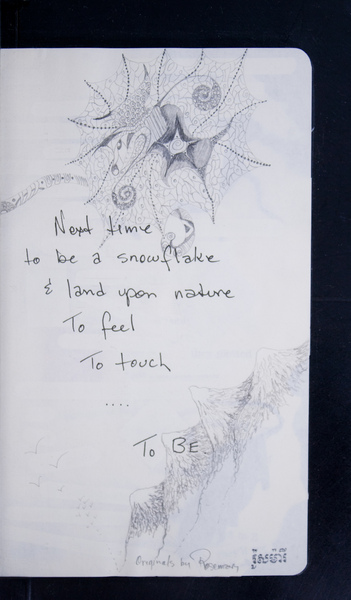 Next time
to be a snowflake
& land upon nature
To feel
To touch
....
To BE
Originals by Rosemary
រ៉ូសម៉ារី